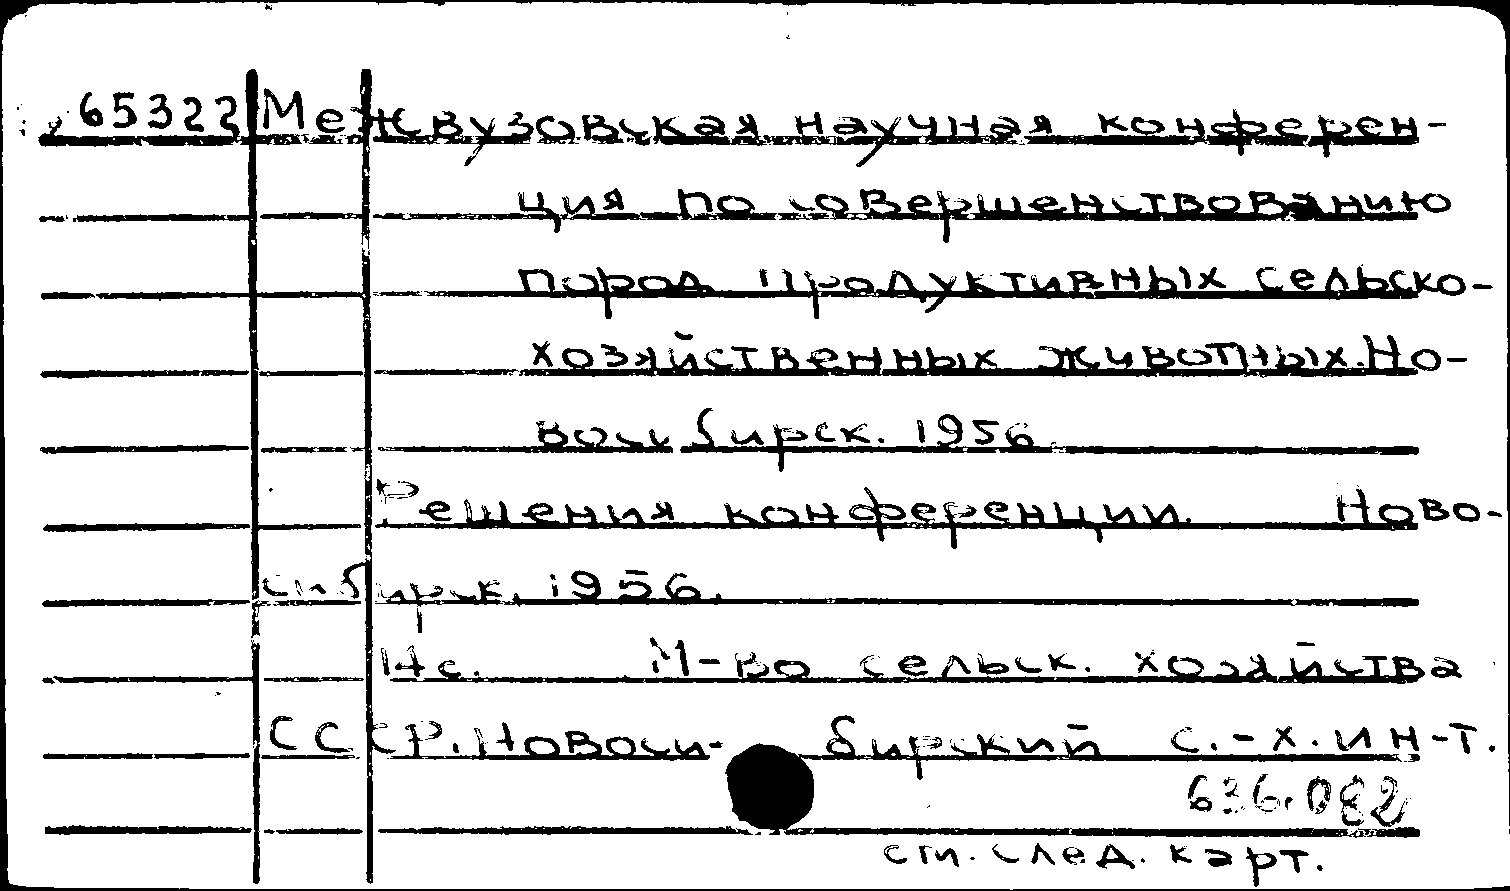 65322 Межвузовская научная конферен-
ция по совершенствованию
пород продуктивных сельско-
хозяйственных животных. Но-
восибирск. 1956
Решения конференции. Ново-
сибирск. 1956.
14 с. М-во сельск. хозяйства
СССР. Новоси- бирский с.-х. ин-т.
636.082
см. след. карт.